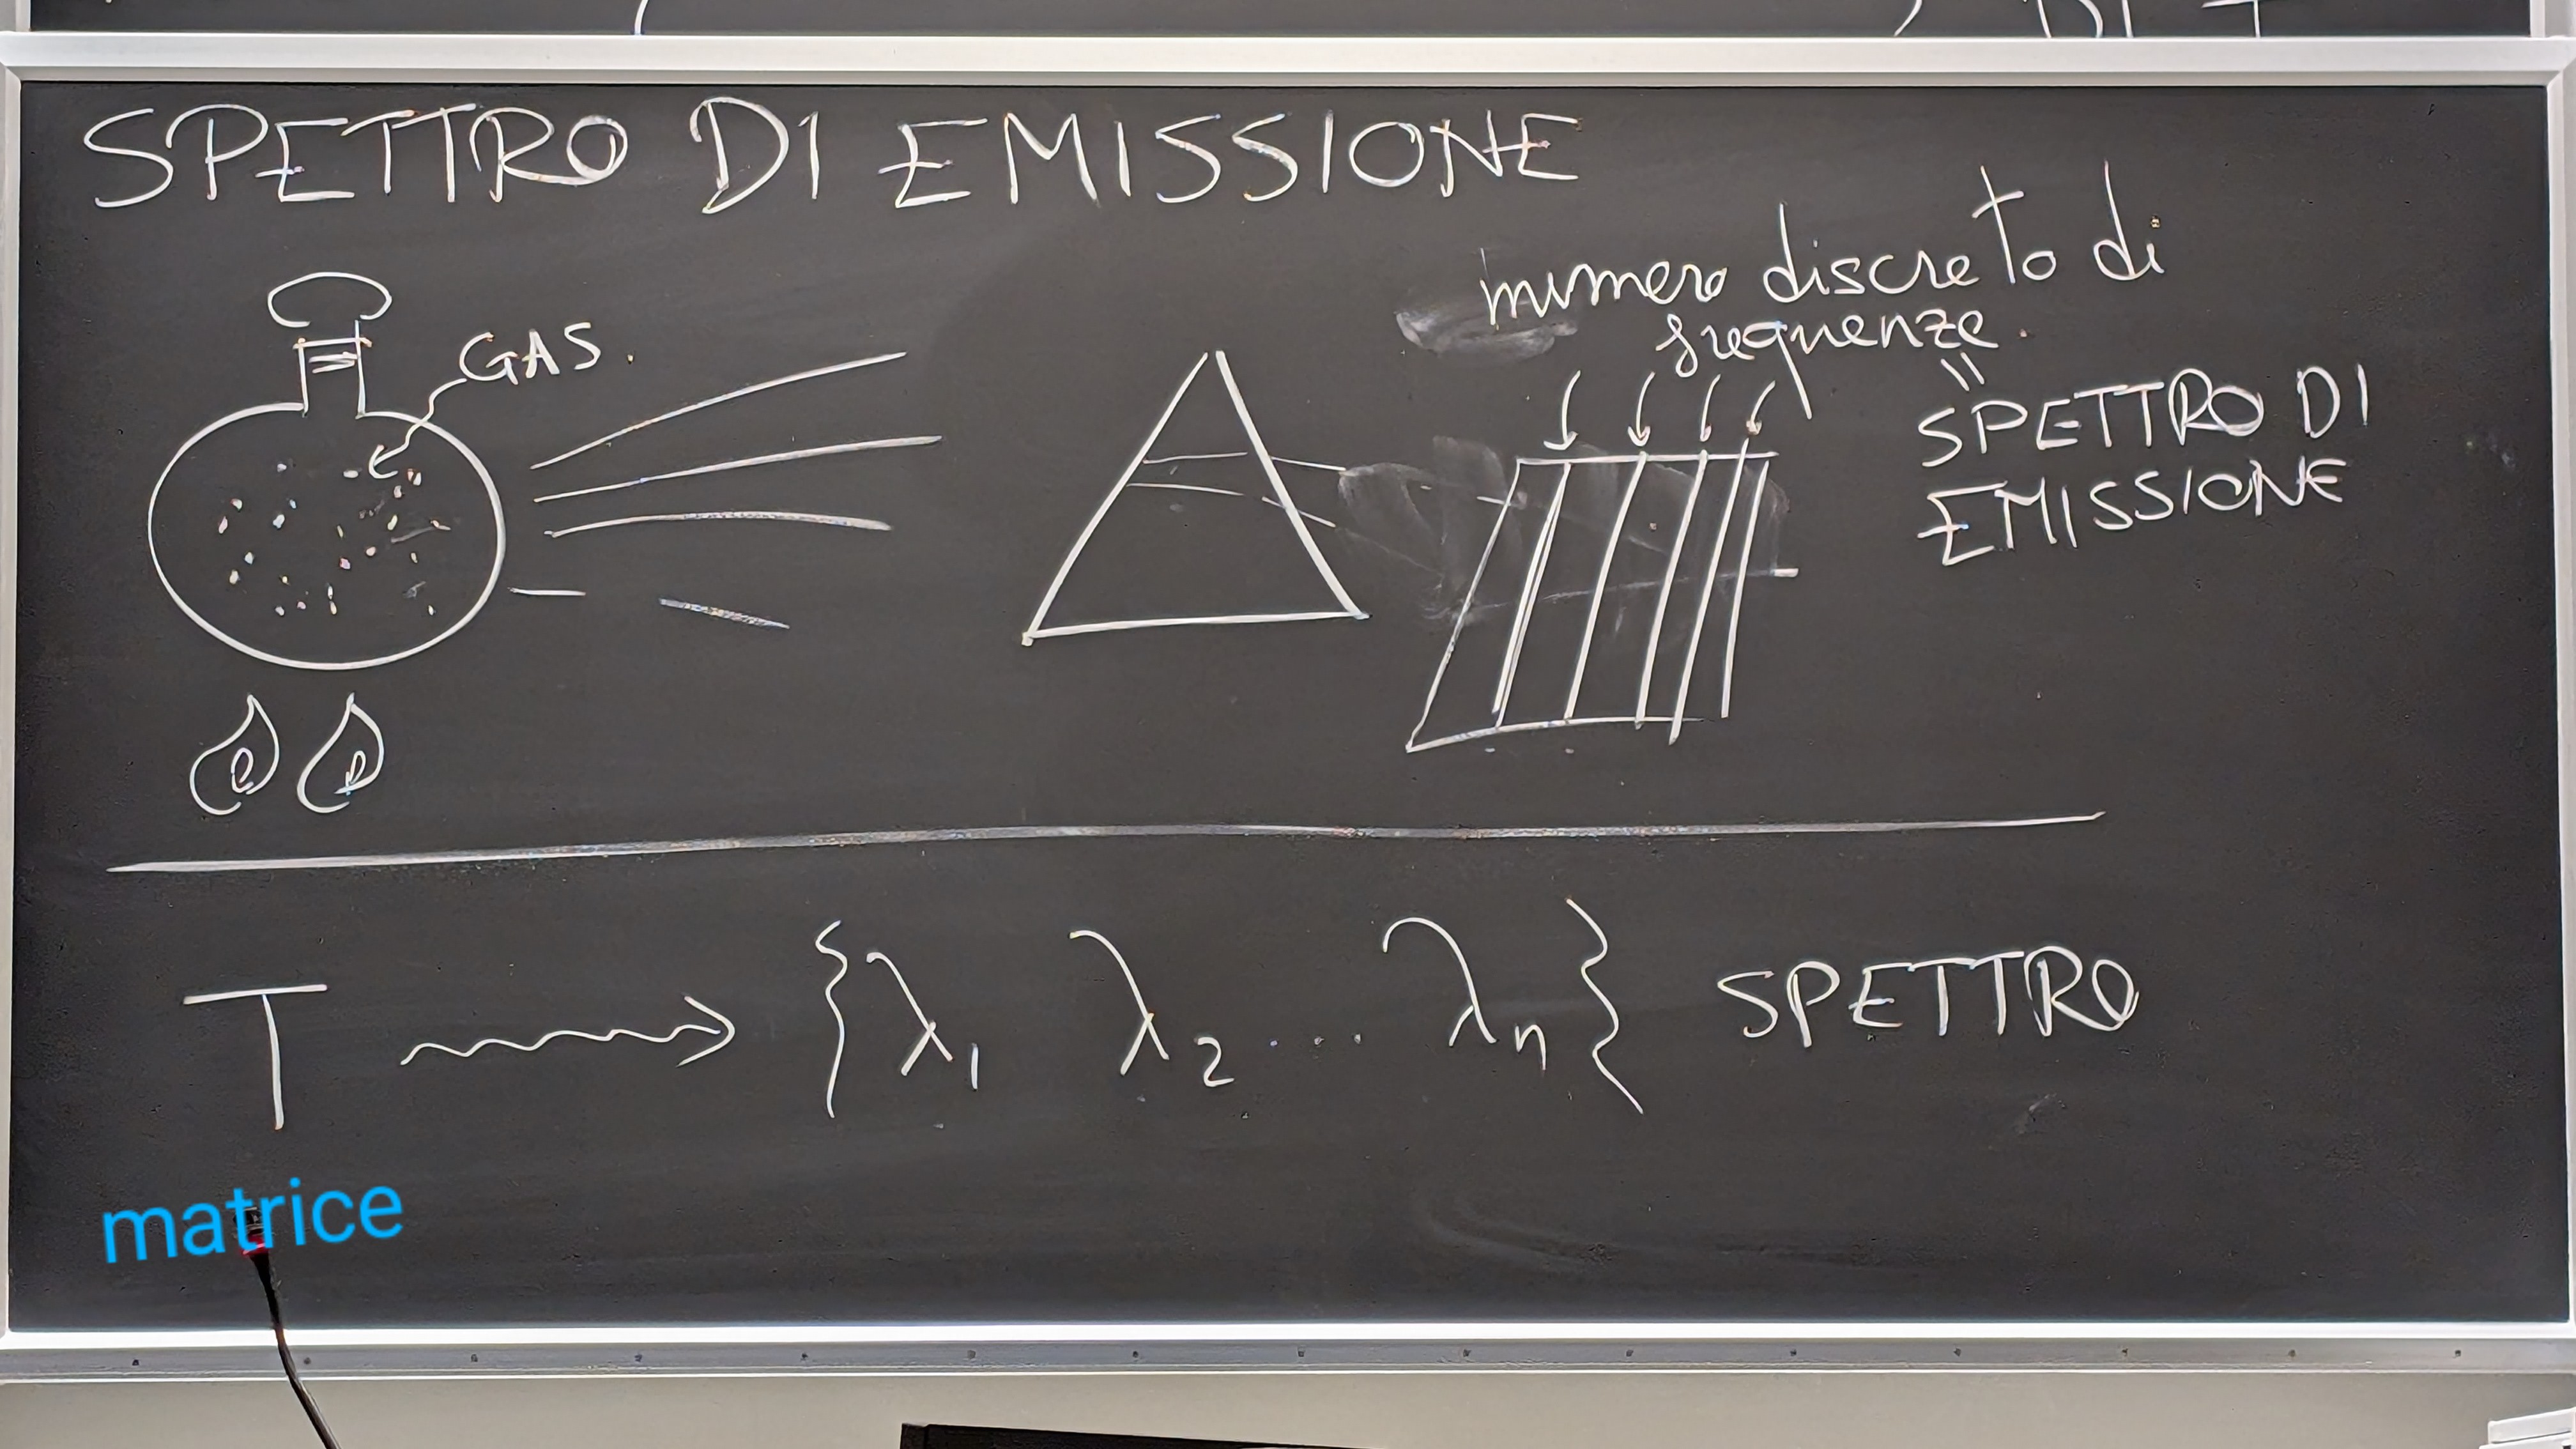 SPETTRO DI EMISSIONE
numero discreto di
frequenze.
GAS.
SPETTRO DI
EMISSIONE
T { λ1 λ2 ... λn } SPETTRO
matrice